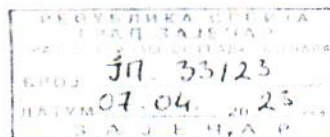 РЕПУБЛИКА СРБИЈА
ГРАД ЗАЈЕЧАР
БРОЈ ЈП. 33/23
ДАТУМ 07.04. 20 23
ЗАЈЕЧАР